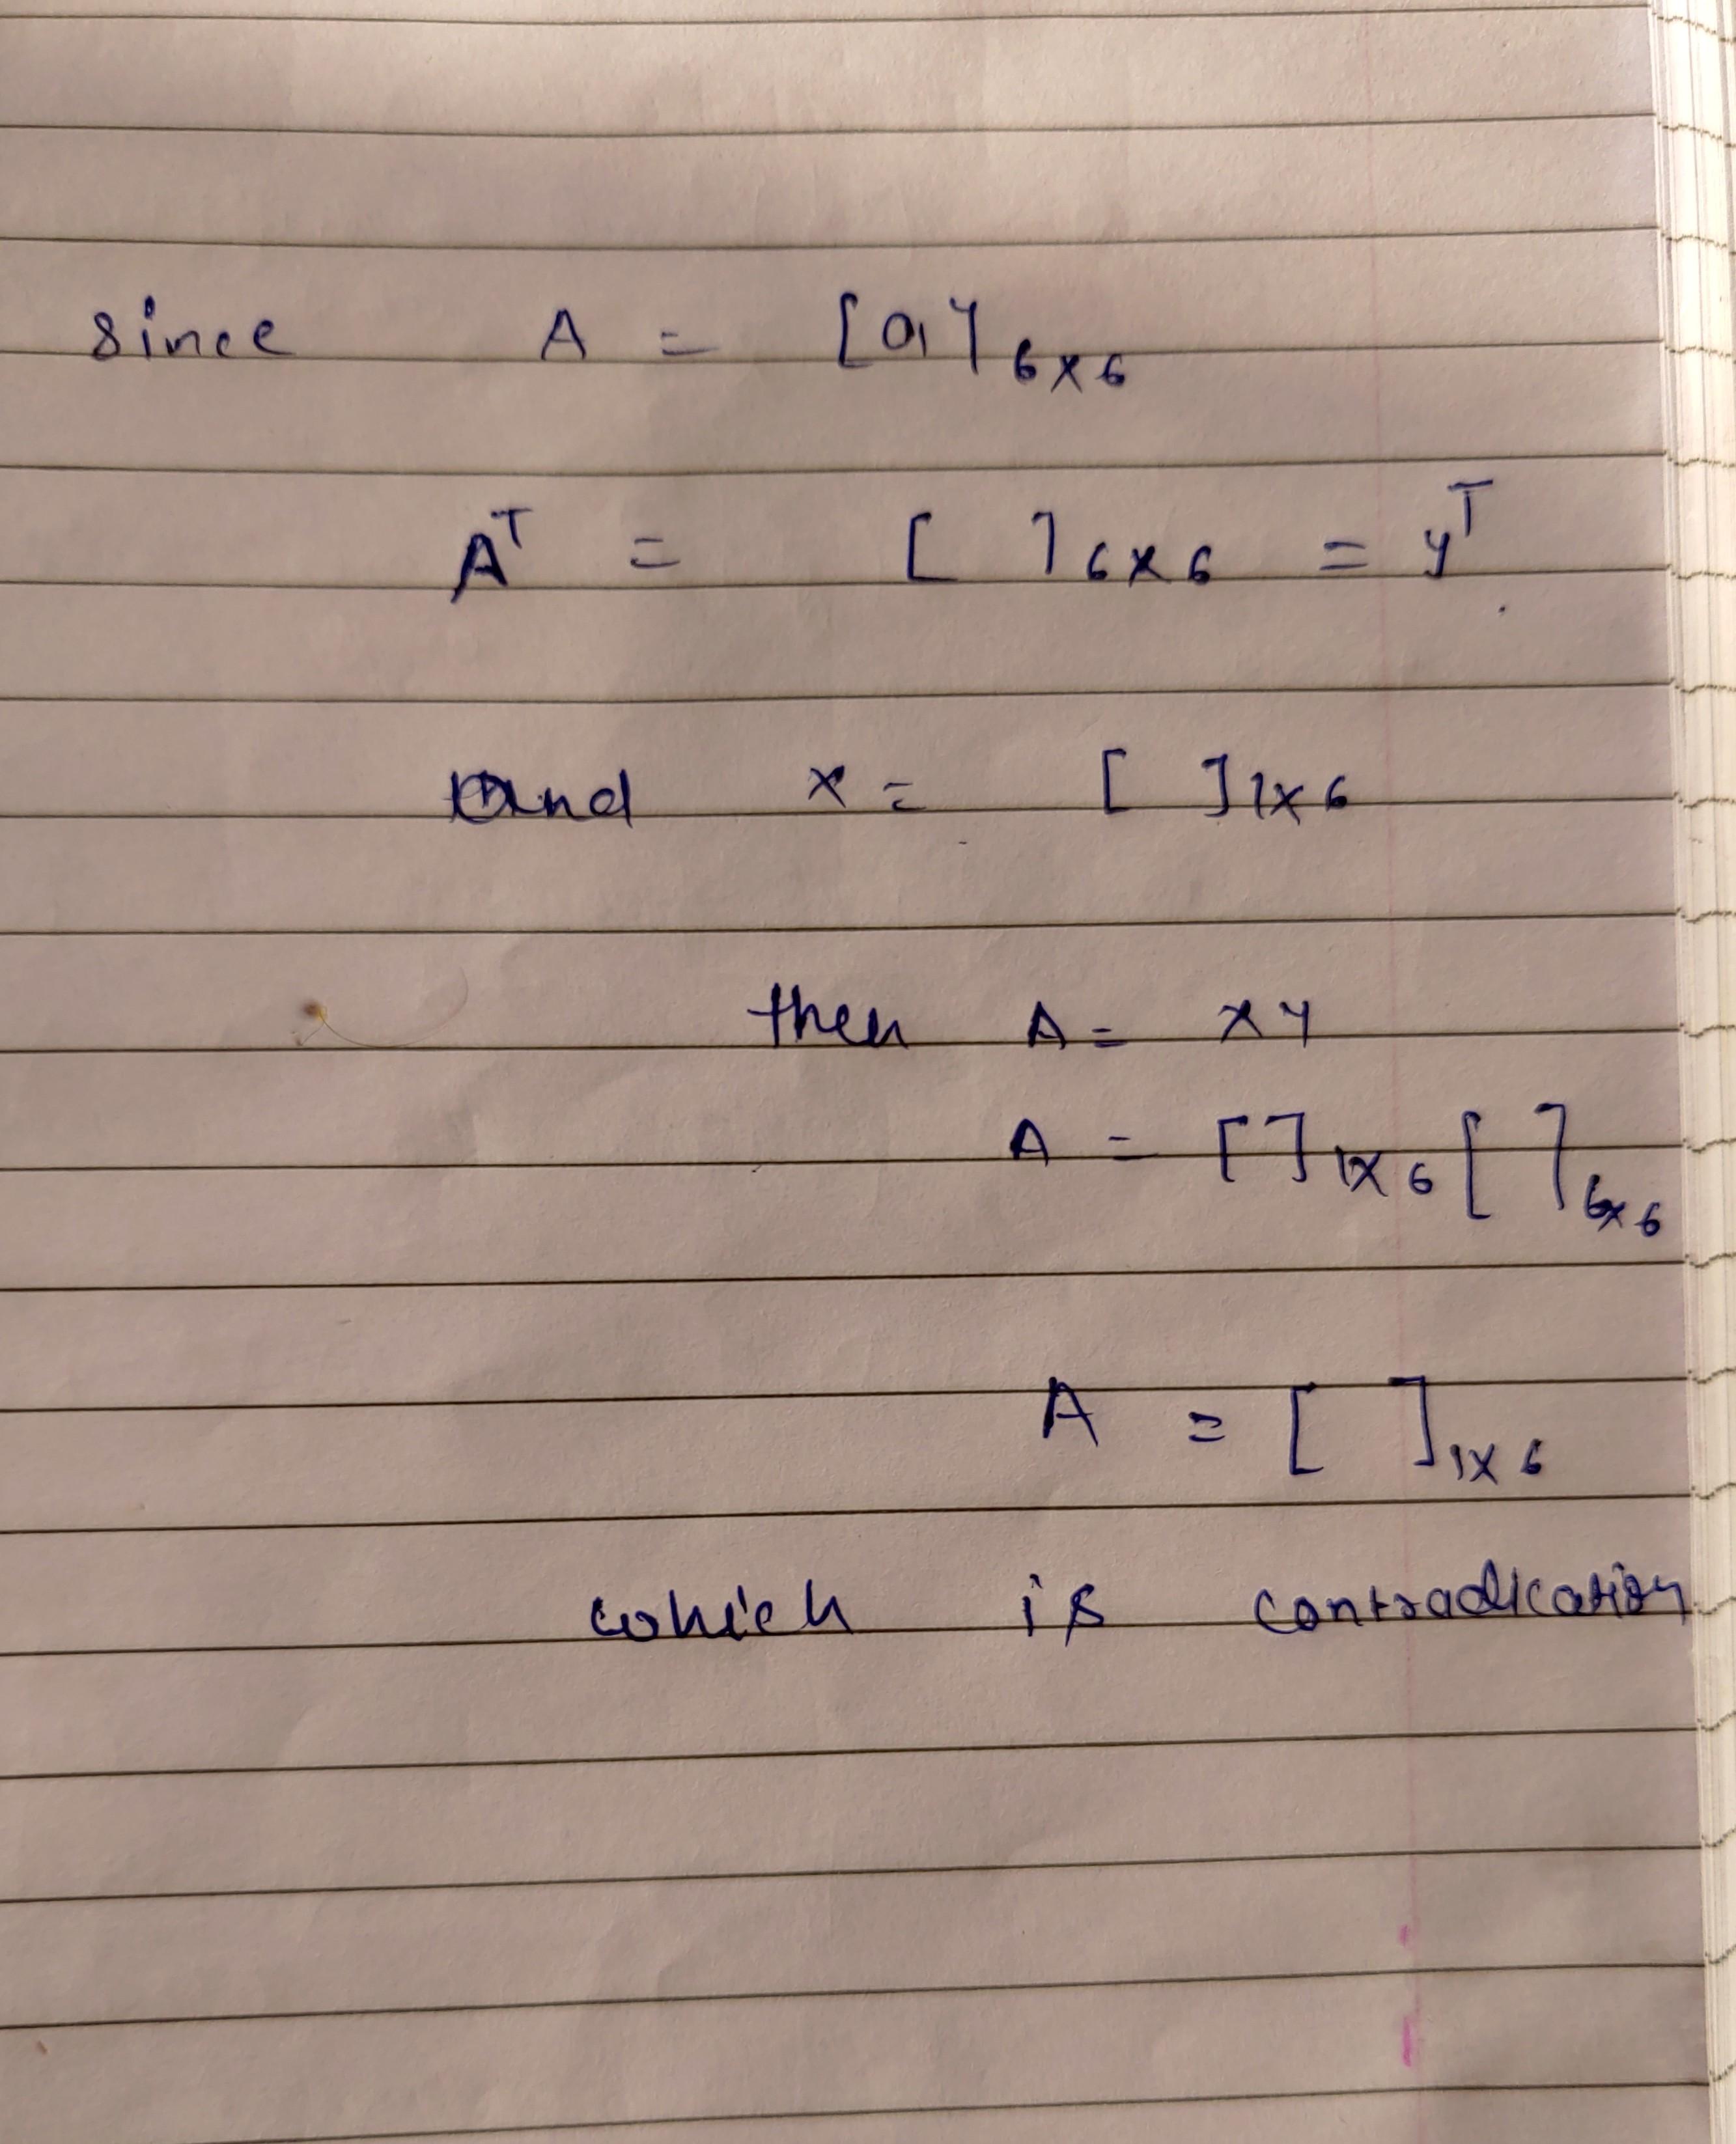 since A = [a]6x6
Aᵀ = [ ]6x6 = yᵀ
and x = [ ]1x6
then A = xy
A = [ ]1x6 [ ]6x6
A = [ ]1x6
which is contradication